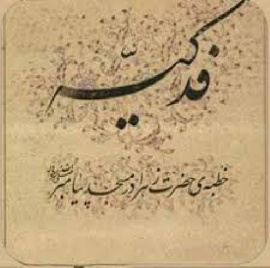 فدکیّه
خطبه‌ی حضرت زهرا در مسجد پیامبر